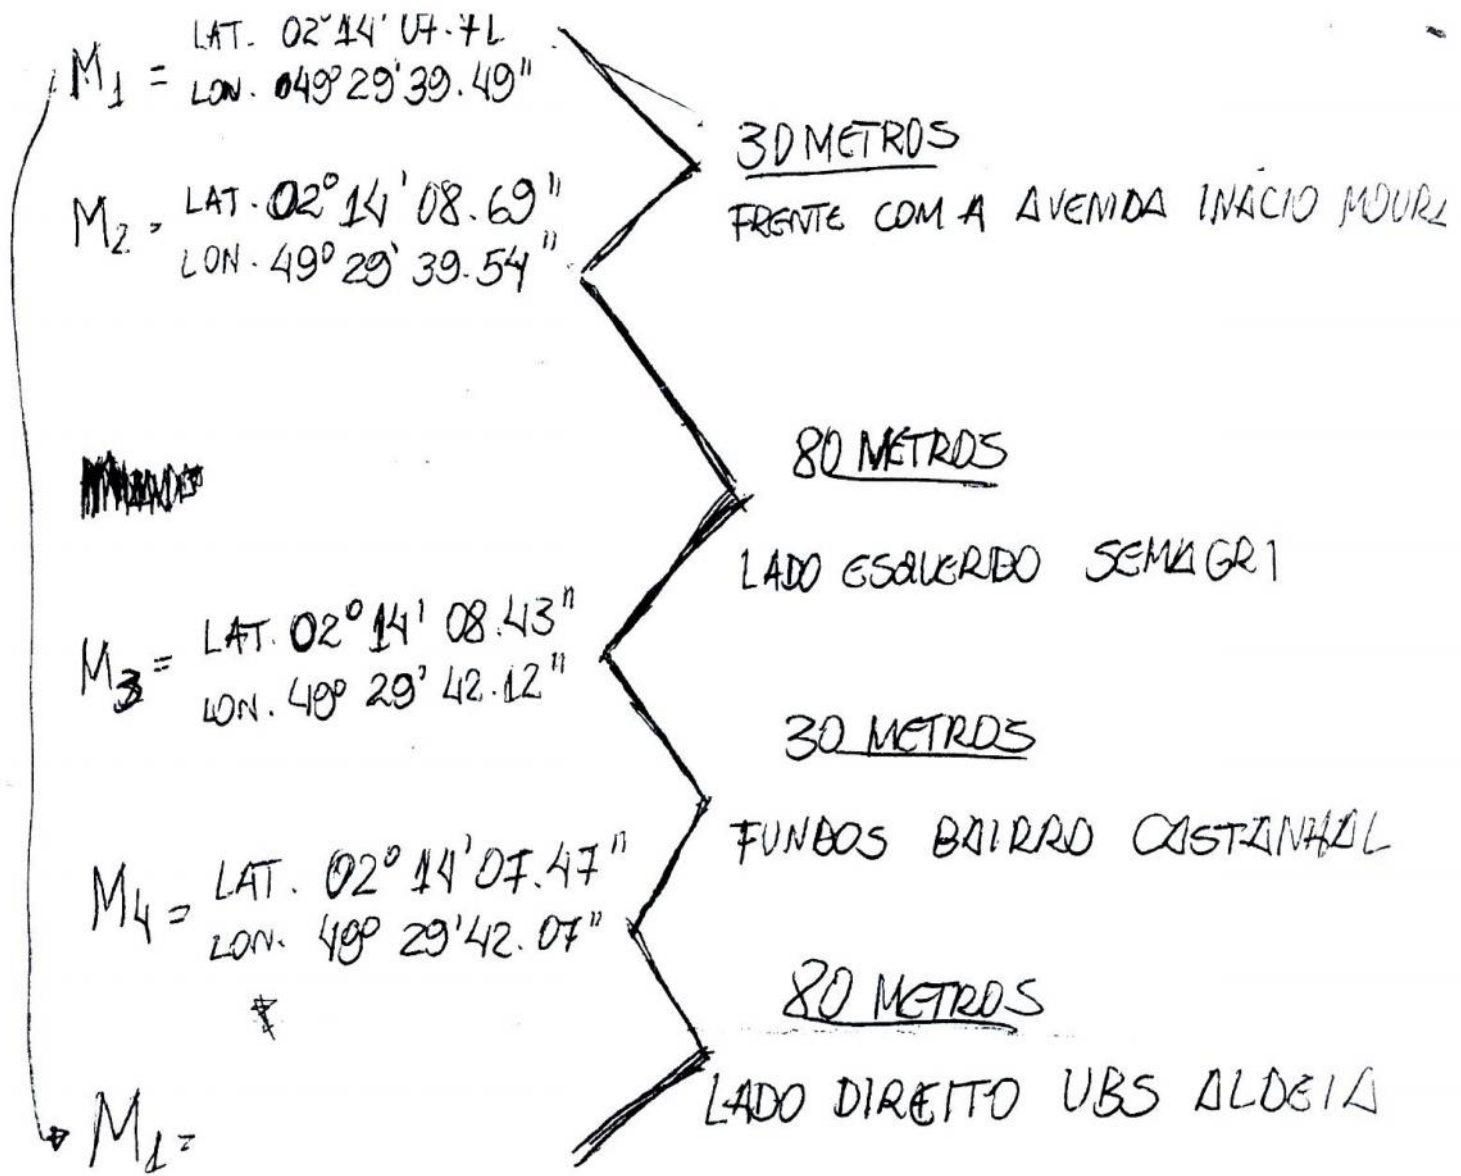 M1 = LAT. 02° 14' 07.71
LON. 049° 29' 39.49"
30 METROS
FRENTE COM A AVENIDA INÁCIO MOURA
M2 = LAT. 02° 14' 08.69"
LON. 49° 29' 39.54"
80 METROS
LADO ESQUERDO SEMAGRI
M3 = LAT. 02° 14' 08.43"
LON. 49° 29' 42.12"
30 METROS
FUNDOS BAIRRO CASTANHAL
M4 = LAT. 02° 14' 07.47"
LON. 49° 29' 42.07"
80 METROS
LADO DIREITO UBS ALDEIA
M1 =